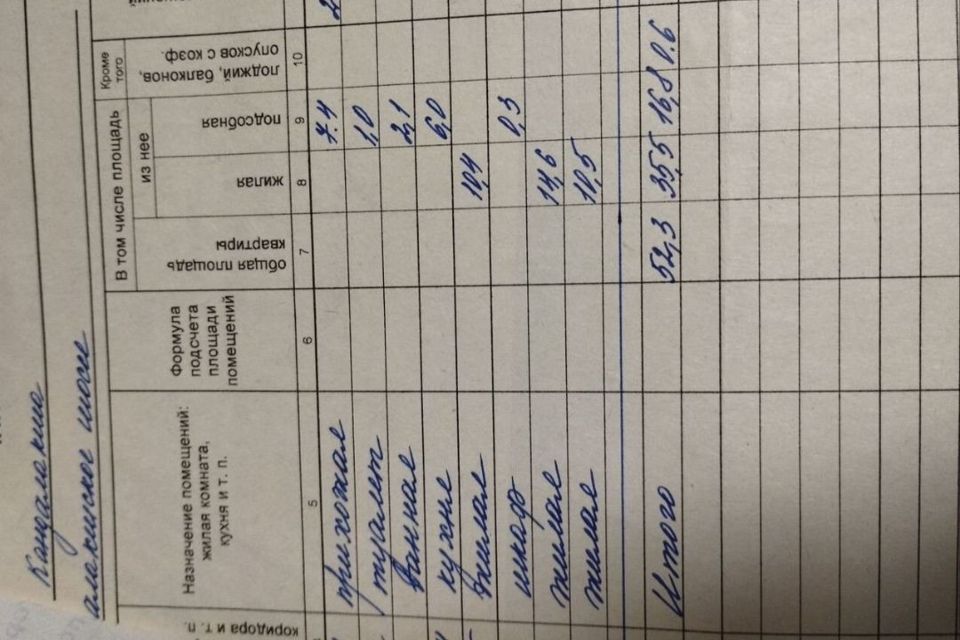 Кандалакша
В том числе площадь
Кроме
того
Назначение помещений:
жилая комната,
кухня и т. п.
Формула
подсчета
площади
помещений
общая площадь
квартиры
из нее
жилая
подсобная
лоджий, балконов,
опусков с коэф.
коридора и т. п.
5 6 7 8 9 10
прихожая 7.4
туалет 1,0
ванная 2,1
кухня 6,0
жилая 10,4
шкаф 0,3
жилая 14,6
жилая 10,5
Итого 52,3 35,5 16,8 0.6